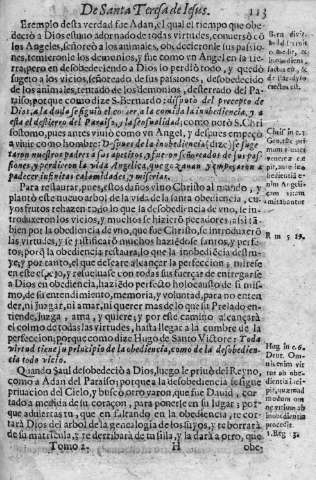 De Santa Teresa de Iesus. 113
Exemplo desta verdad fue Adan, el qual el tiempo que obe-
deciò a Dios estuuo adornado de todas virtudes, conuersò cõ
los Angeles, señoreò a los animales, obedecieronle sus passio-
nes, temieronle los demonios, y fue como vn Angel en la tie-
rra, pero en desobedeciendo a Dios lo perdiò todo, y quedò
sugeto a los vicios, señoreado de sus passiones, desobedecido
de los animales, tentado de los demonios, desterrado del Pa-
raiso, porque como dize S. Bernardo:
del precepto de
Dios, a la duda siguiò el comer, a la comida la inobediencia, y a
esta el destierro del Paraiso, y la sensualidad; como notò S. Chri
sostomo, pues antes viuiò como vn Angel, y despues empeçò
a viuir como hombre: Despues de la inobediencia (dize) se suge
taron nuestros padres a sus apetitos, y fueron señoreados de sus pas
siones, y perdieron la vida Angelica, que gozauan, y empeçaron a
padecer infinitas calamidades y miserias.
Para restaurar, pues, estos daños vino Christo al mundo, y
plantò este nueuo arbol de la vida de la santa obediencia, cu-
yos frutos rehazen todo lo que la desobediencia de vno, se in-
troduxeron los vicios, y muchos se hizieron pecadores: assi tã-
bien por la obediencia de vno, que fue Christo, se introduxerõ
las virtudes, y se justificarõ muchos haziẽdose santos, y perfe-
tos; porq̃ la obediencia restaura, lo que la inobediẽcia destru-
ye, y por tanto, el que desseare alcançar la perfeccion; mirese
en este espejo, y resueluase con todas sus fuerças de entregarse
a Dios en obediencia, haziẽdo perfecto holocausto de si mis-
mo, de su entendimiento, memoria, y voluntad, para no enten-
der, ni juzgar, ni amar, ni querer mas de lo que su Prelado en-
tiende, juzga, ama, y quiere; y por este camino alcançarà
el colmo de todas las virtudes, hasta llegar a la cumbre de la
perfeccion; porque como dize Hugo de Santo Victore: Toda
virtud tiene su principio de la obediencia, como de la desobedien-
cia todo vicio.
Quando Saul desobedeciò a Dios, luego le priuò del Reyno,
como a Adan del Paraiso; porque a la desobediencia se sigue
priuacion del Cielo, y buscò otro varon, que fue Dauid, cor-
tado a medida de su coraçon, para ponerle en su lugar; por-
que aduiertas tu, que en faltando en la obediencia, te cor-
tarà Dios del arbol de la genealogia de los suyos, y te borrarà
de su matricula, y te derribarà de tu silla, y la darà a otro, que
Tomo 2. H obe-
Chris. in c. 2.
Rom. 5. 19.
Hug. in c. 6.
1. Reg. 13.